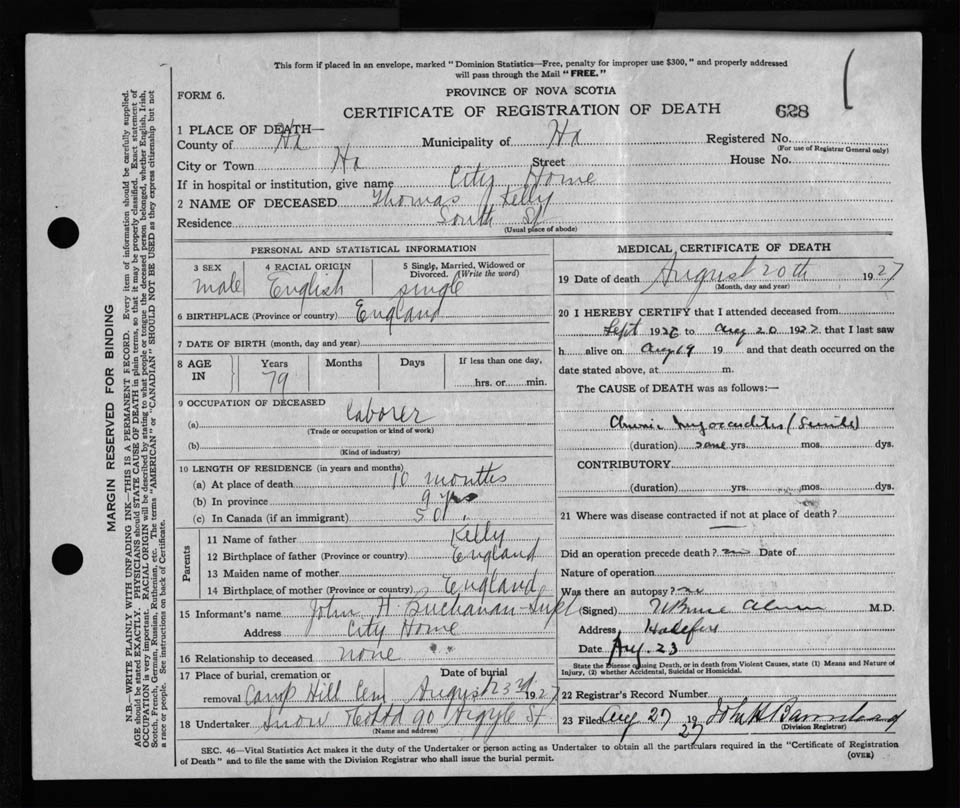 This form if placed in an envelope, marked " Dominion Statistics—Free, penalty for improper use $300," and properly addressed
will pass through the Mail "FREE."
PROVINCE OF NOVA SCOTIA
FORM 6.
CERTIFICATE OF REGISTRATION OF DEATH 628
1 PLACE OF DEATH—
County of Hx Municipality of Hx Registered No.
(For use of Registrar General only)
City or Town Hx Street House No.
If in hospital or institution, give name City Home
2 NAME OF DECEASED Thomas Kelly
Residence South St
(Usual place of abode)
PERSONAL AND STATISTICAL INFORMATION
3 SEX 4 RACIAL ORIGIN 5 Single, Married, Widowed or
Divorced. (Write the word)
male English single
6 BIRTHPLACE (Province or country) England
7 DATE OF BIRTH (month, day and year)
8 AGE IN Years Months Days If less than one day,
79 hrs. or min.
9 OCCUPATION OF DECEASED
(a) laborer
(Trade or occupation or kind of work)
(b)
(Kind of industry)
10 LENGTH OF RESIDENCE (in years and months)
(a) At place of death 10 months
(b) In province 9 yrs
(c) In Canada (if an immigrant) 50 "
Parents
11 Name of father Kelly
12 Birthplace of father (Province or country) England
13 Maiden name of mother
14 Birthplace of mother (Province or country) England
15 Informant's name John H. Buchanan Supt
Address City Home
16 Relationship to deceased none
17 Place of burial, cremation or Date of burial
removal Camp Hill Cem August 23rd 1927
18 Undertaker Snow & Co Ltd 90 Argyle St
(Name and address)
MEDICAL CERTIFICATE OF DEATH
19 Date of death August 20th 1927
(Month, day and year)
20 I HEREBY CERTIFY that I attended deceased from
Sept 1926 to Aug 20 1927 that I last saw
h alive on Aug 19 19 and that death occurred on the
date stated above, at m.
The CAUSE of DEATH was as follows:—
Chronic Myocarditis (Senile)
(duration) some yrs. mos. dys.
CONTRIBUTORY
(duration) yrs. mos. dys.
21 Where was disease contracted if not at place of death?
Did an operation precede death? no Date of
Nature of operation
Was there an autopsy? no
(Signed) M.D.
Address Halifax
Date Aug. 23
State the Disease causing Death, or in death from Violent Causes, state (1) Means and Nature of
Injury, (2) whether Accidental, Suicidal or Homicidal.
22 Registrar's Record Number
23 Filed Aug 27 1927 John A Barnstead
(Division Registrar)
SEC. 46—Vital Statistics Act makes it the duty of the Undertaker or person acting as Undertaker to obtain all the particulars required in the "Certificate of Registration
of Death" and to file the same with the Division Registrar who shall issue the burial permit. (OVER)
MARGIN RESERVED FOR BINDING
N.B.—WRITE PLAINLY WITH UNFADING INK—THIS IS A PERMANENT RECORD. Every item of information should be carefully supplied.
AGE should be stated EXACTLY. PHYSICIANS should STATE CAUSE OF DEATH in plain terms, so that it may be properly classified. Exact statement of
OCCUPATION is very important. RACIAL ORIGIN will be described by stating to what people or tongue the deceased person belonged, whether English, Irish,
Scotch, French, German, Russian, Ruthenian, etc. The terms "AMERICAN" or "CANADIAN" SHOULD NOT BE USED as they express citizenship but not
a race or people. See instructions on back of Certificate.